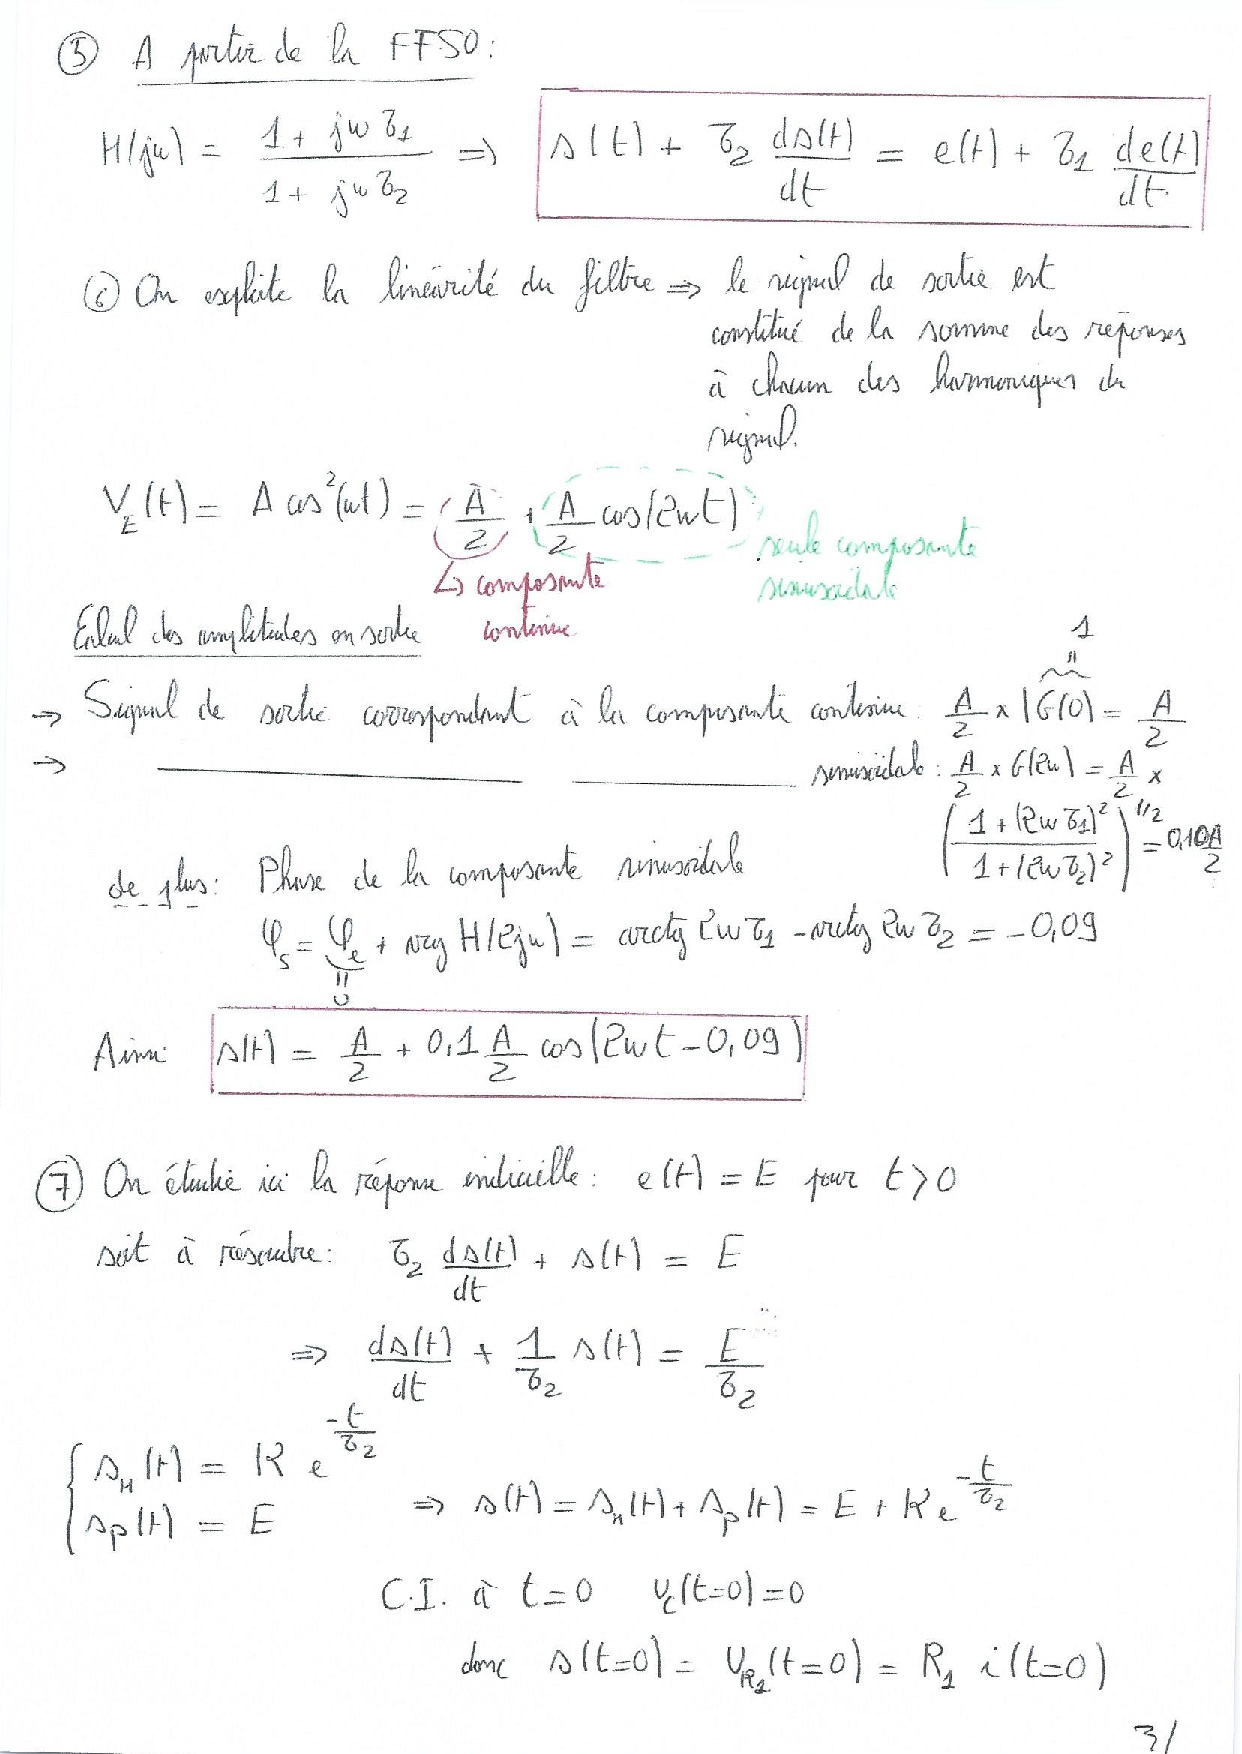 ⑤ A partir de la FTSO:
H(jω) = (1 + jω τ1)/(1 + jω τ2) ⇒ s(t) + τ2 ds(t)/dt = e(t) + τ1 de(t)/dt
⑥ On exploite la linéarité du filtre ⇒ le signal de sortie est
constitué de la somme des réponses
à chacun des harmoniques du
signal.
V_E(t) = A cos²(ωt) = A/2 + A/2 cos(2ωt)
seule composante
sinusoidale
↳ composante
continue
Calcul des amplitudes en sortie
1
=
→ Signal de sortie correspondant à la composante continue: A/2 × |G(0) = A/2
→ ———— ———— sinusoidale: A/2 × G(2ω) = A/2 ×
((1 + (2ωτ1)²)/(1 + (2ωτ2)²))^1/2 = 0,10 A/2
de plus: Phase de la composante sinusoidale
φs = φe + arg H(2jω) = arctg 2ωτ1 - arctg 2ωτ2 = -0,09
=
0
Ainsi: s(t) = A/2 + 0,1 A/2 cos(2ωt - 0,09)
⑦ On étudie ici la réponse indicielle: e(t) = E pour t > 0
soit à résoudre: τ2 ds(t)/dt + s(t) = E
⇒ ds(t)/dt + 1/τ2 s(t) = E/τ2
{ s_H(t) = K e^(-t/τ2)
s_P(t) = E ⇒ s(t) = s_H(t) + s_p(t) = E + K e^(-t/τ2)
C.I. à t=0 U_c(t=0)=0
donc s(t=0) = U_R1(t=0) = R1 i(t=0)
3/